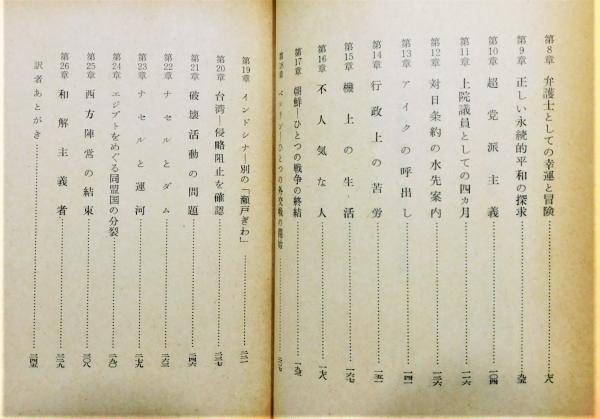 第8章 弁護士としての幸運と冒険
第9章 正しい永続的平和の探求
第10章 超党派主義 一〇四
第11章 上院議員としての四カ月 一一六
第12章 対日条約の水先案内 一二六
第13章 アイクの呼出し 一四一
第14章 行政上の苦労 一五一
第15章 機上の生活 一六七
第16章 不人気な人 一七八
第17章 朝鮮―ひとつの戦争の終結
第18章 ひとつの外交戦の開始
第19章 インドシナ―別の「瀬戸ぎわ」 二二一
第20章 台湾―侵略阻止を確認 二三七
第21章 破壊活動の問題 二四六
第22章 ナセルとダム 二六三
第23章 ナセルと運河 二七九
第24章 エジプトをめぐる同盟国の分裂 二九〇
第25章 西方陣営の結束 三〇八
第26章 和解主義者
訳者あとがき 三四五